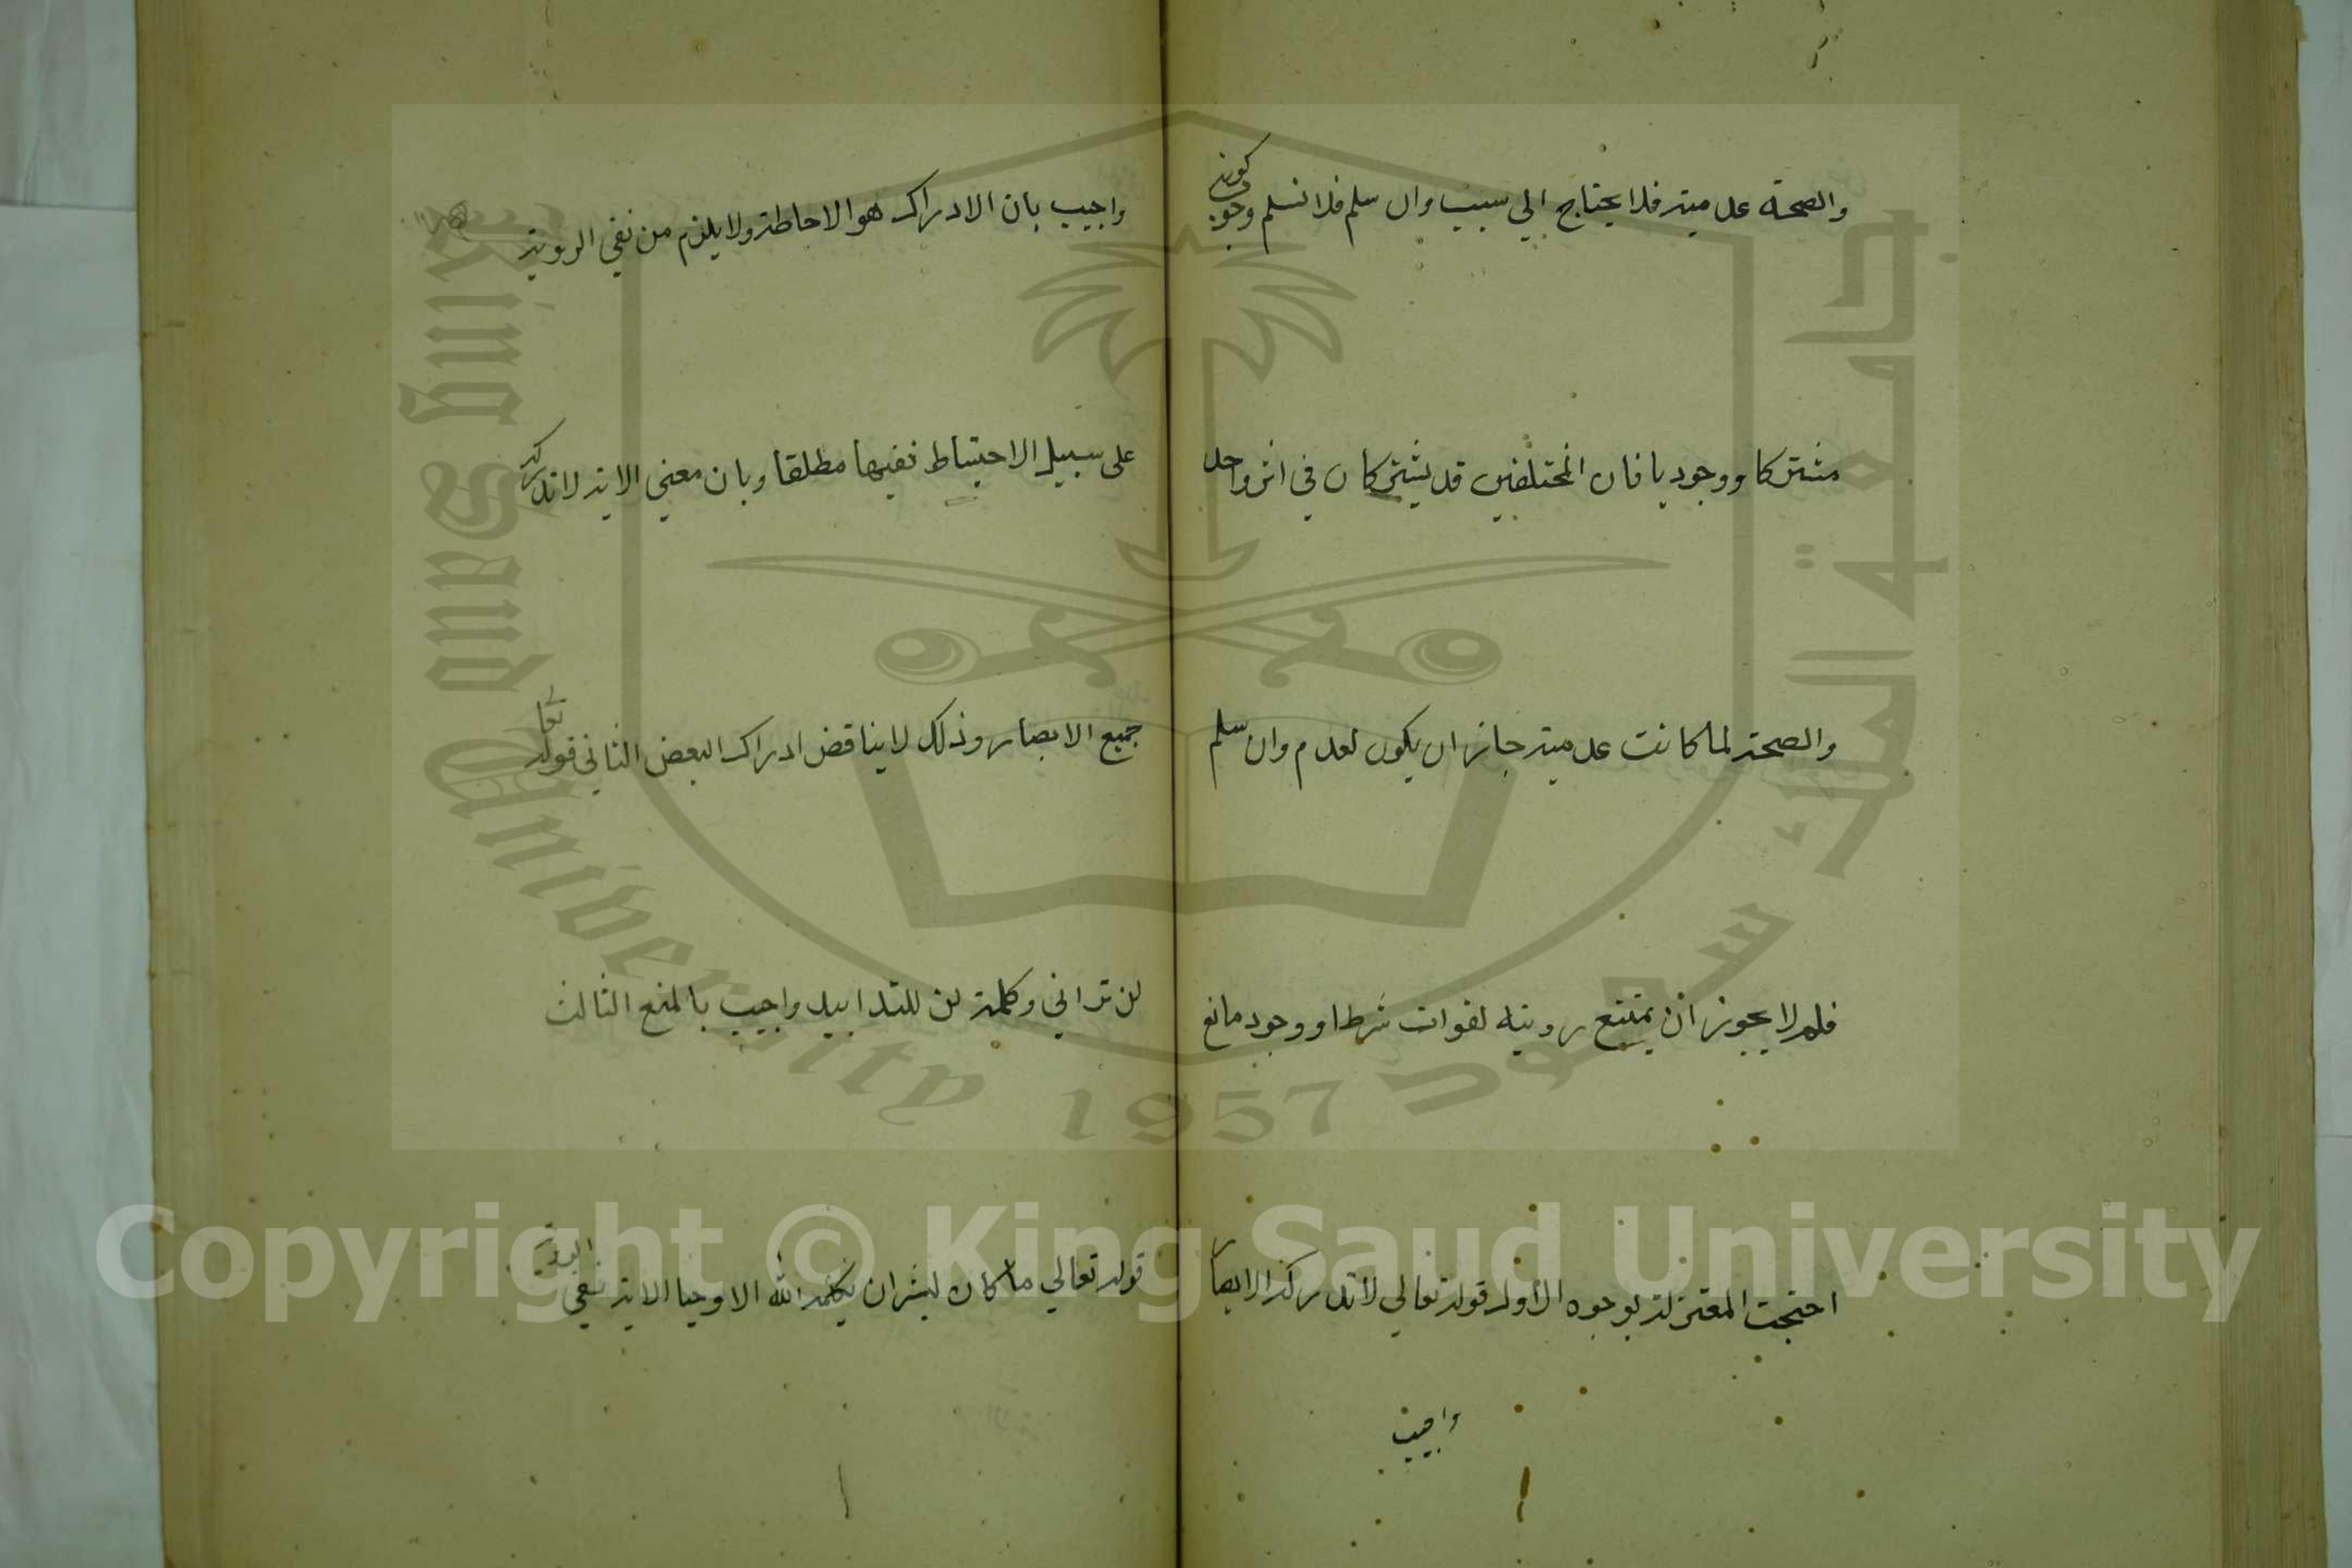 والصحة عدمية فلا يحتاج الي سبب وان سلم فلا نسلم وجوب كونه
مشتركا ووجوديا فان المختلفين قد يشتركان في اثر واحد
والصحة لما كانت عدمية جاز ان يكون لعدم وان سلم
فلم لا يجوز ان يمتنع رويته لفوات شرط او وجود مانع
احتجت المعتزلة بوجوه الأول قوله تعالي لا تدركه الابصار
واجيب
واجيب بان الادراك هو الاحاطة ولا يلزم من نفي الروية
على سبيل الاحتياط نفيها مطلقا وبان معني الاية لا تدركه
جميع الابصار وذلك لا يناقض ادراك البعض الثاني قوله تعا
لن تراني وكلمة لن للتدابيد واجيب بالمنع الثالث
قوله تعالي ما كان لبشر ان يكلمه الله الا وحيا الاية نفي الروية
King Saud University 1957
جامعة الملك سعود
Copyright © King Saud University